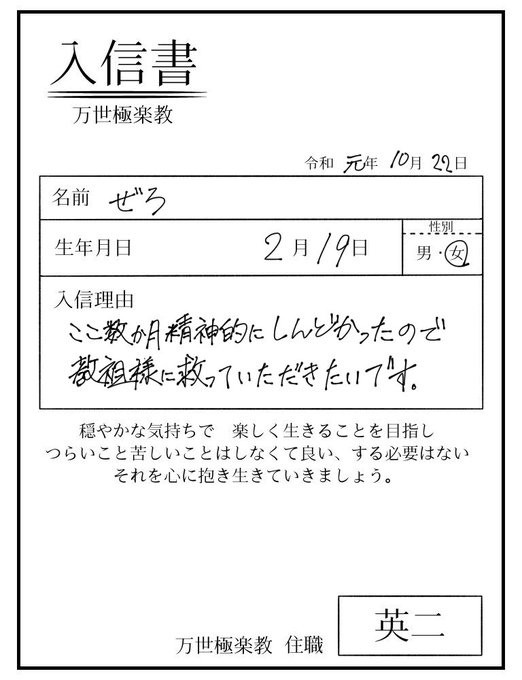 入信書
万世極楽教
令和 元年 10月 22日
名前 ぜろ
生年月日 2月19日
性別
男・女
入信理由
ここ数か月精神的にしんどかったので
教祖様に救っていただきたいです。
穏やかな気持ちで 楽しく生きることを目指し
つらいこと苦しいことはしなくて良い、する必要はない
それを心に抱き生きていきましょう。
万世極楽教 住職 英二